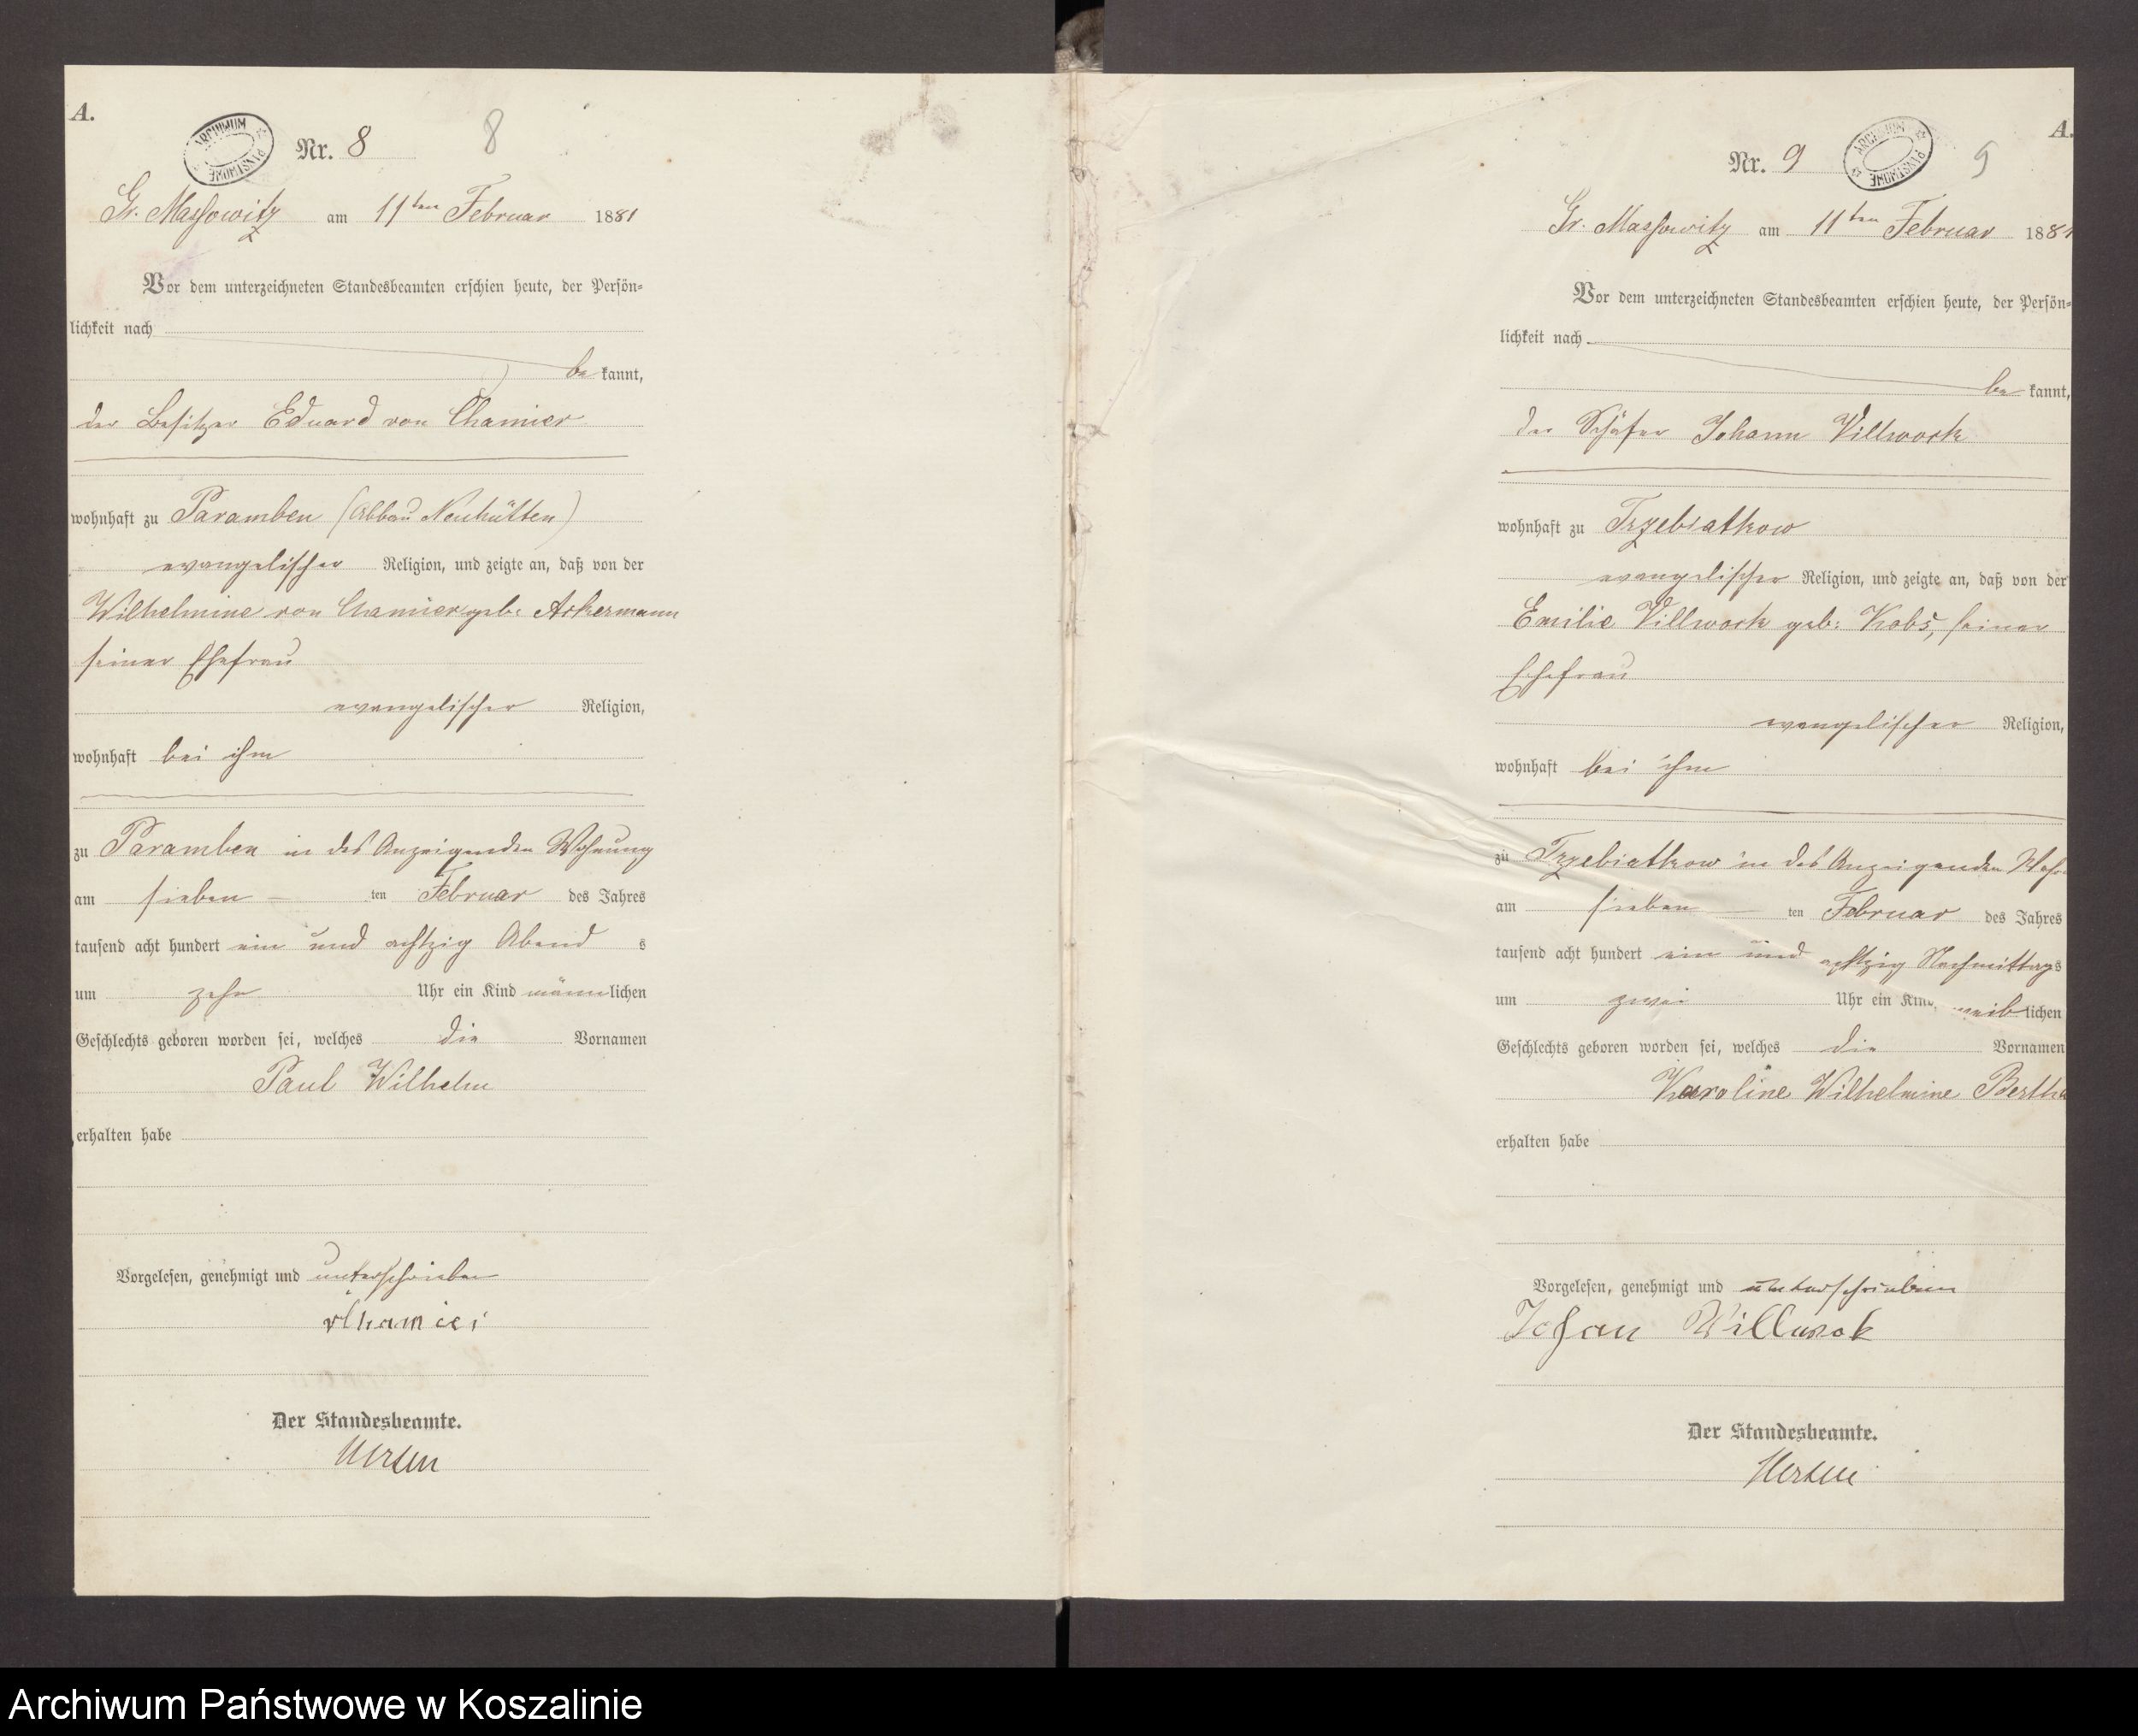 A.
ARCHIWUM PAŃSTWOWE
Nr. 8
8
Gr. Massowitz am 11ten Februar 1881
Vor dem unterzeichneten Standesbeamten erschien heute, der Persön-
lichkeit nach
be kannt,
der Besitzer Eduard von Chamier
wohnhaft zu Paramben (Abbau Neuhütten)
evangelischer Religion, und zeigte an, daß von der
Wilhelmine von Chamier geb: Ackermann
seiner Ehefrau
evangelischer Religion,
wohnhaft bei ihm
zu Paramben in des Anzeigenden Wohnung
am sieben ten Februar des Jahres
tausend acht hundert ein und achtzig Abend s
um zehn Uhr ein Kind männlichen
Geschlechts geboren worden sei, welches die Vornamen
Paul Wilhelm
erhalten habe
Vorgelesen, genehmigt und unterschrieben
vChamier
Der Standesbeamte.
A.
Nr. 9
ARCHIWUM PAŃSTWOWE
9
Gr. Massowitz am 11ten Februar 1881
Vor dem unterzeichneten Standesbeamten erschien heute, der Persön-
lichkeit nach
be kannt,
der Schäfer Johann Villwock
wohnhaft zu Trzebiatkow
evangelischer Religion, und zeigte an, daß von der
Emilie Villwock geb: Kobs, seiner
Ehefrau
evangelischer Religion,
wohnhaft bei ihm
zu Trzebiatkow in des Anzeigenden Woh
am sieben ten Februar des Jahres
tausend acht hundert ein und achtzig Nachmittags
um zwei Uhr ein Kind weiblichen
Geschlechts geboren worden sei, welches die Vornamen
Karoline Wilhelmine Bertha
erhalten habe
Vorgelesen, genehmigt und unterschrieben
Johan Willwok
Der Standesbeamte.
Archiwum Państwowe w Koszalinie